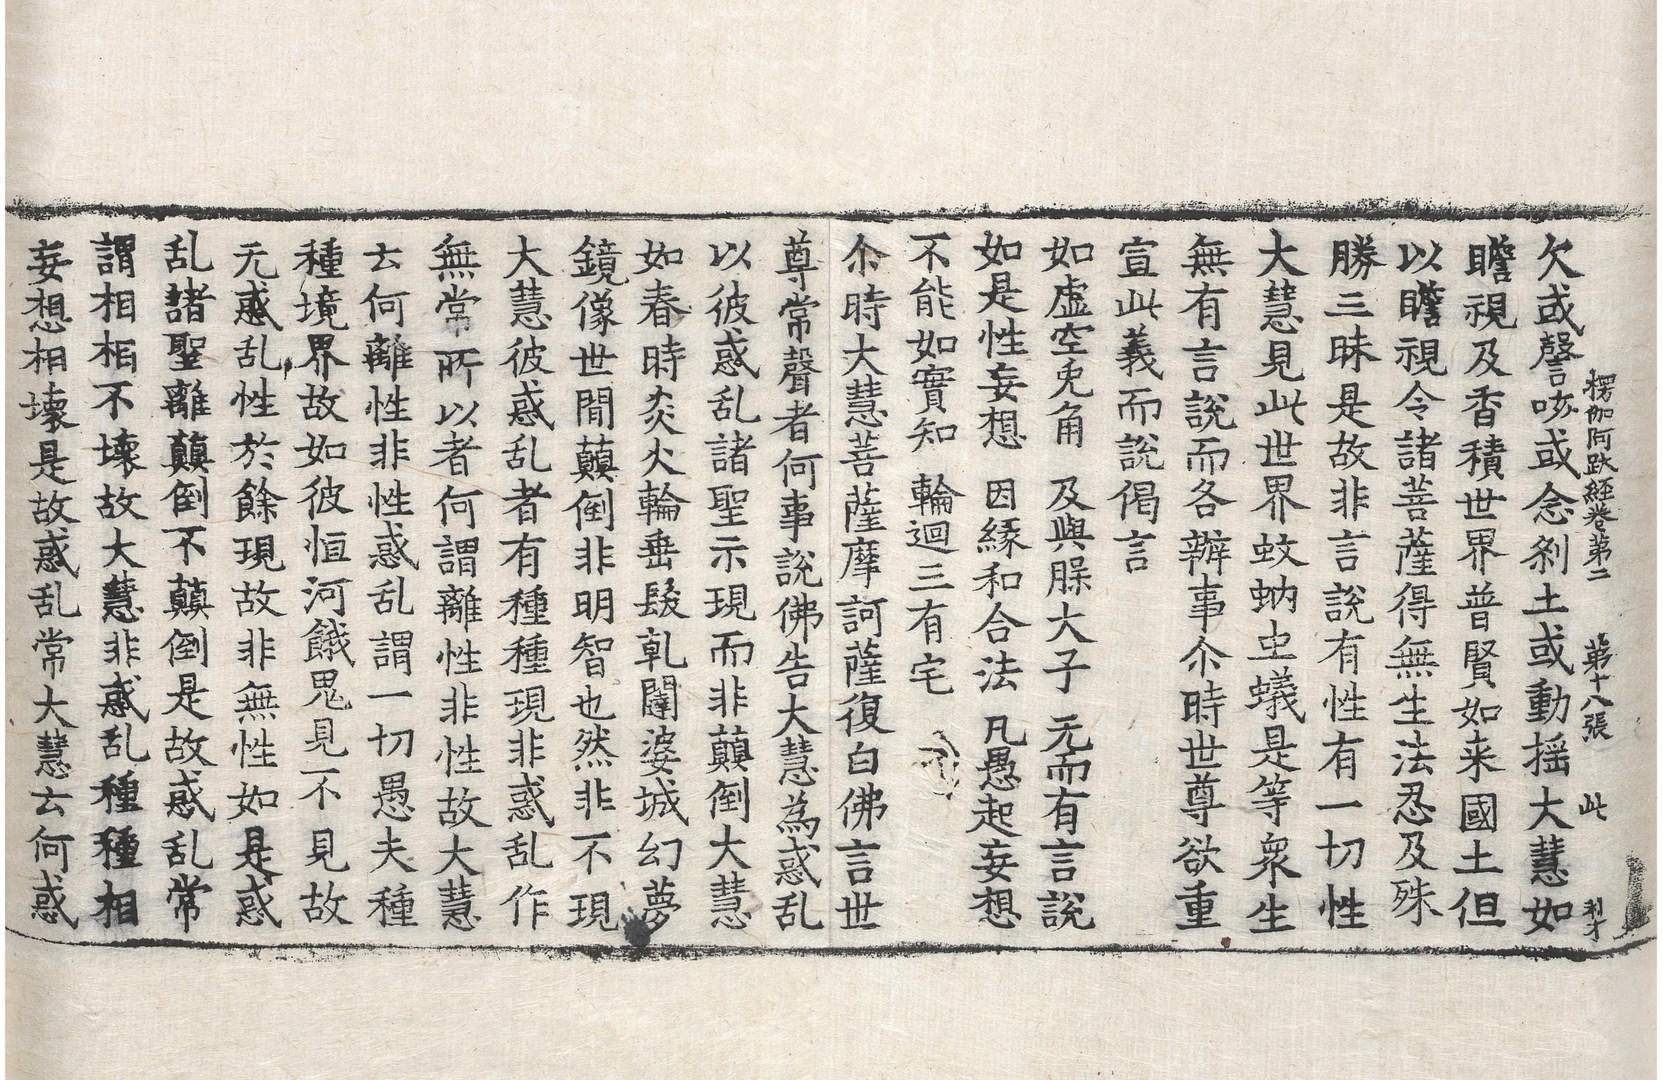 楞伽阿跋經卷第二　第十八張　此　利才
欠或謦咳或念刹土或動揺大慧如
瞻視及香積世界普賢如来國土但
以瞻視令諸菩薩得無生法忍及殊
勝三昧是故非言說有性有一切性
大慧見此世界蚊蚋虫蟻是等衆生
無有言說而各辦事尒時世尊欲重
宣此義而說偈言
如虚空兎角　及與臊大子　无而有言說
如是性妄想　因緣和合法　凡愚起妄想
不能如實知　輪迴三有宅
尒時大慧菩薩摩訶薩復白佛言世
尊常聲者何事說佛告大慧為惑乱
以彼惑乱諸聖示現而非顛倒大慧
如春時炎火輪垂髮乹闥婆城幻夢
鏡像世間顛倒非明智也然非不現
大慧彼惑乱者有種種現非惑乱作
無常所以者何謂離性非性故大慧
云何離性非性惑乱謂一切愚夫種
種境界故如彼恒河餓鬼見不見故
无惑乱性於餘現故非無性如是惑
乱諸聖離顛倒不顛倒是故惑乱常
謂相相不壊故大慧非惑乱種種相
妄想相壊是故惑乱常大慧云何惑